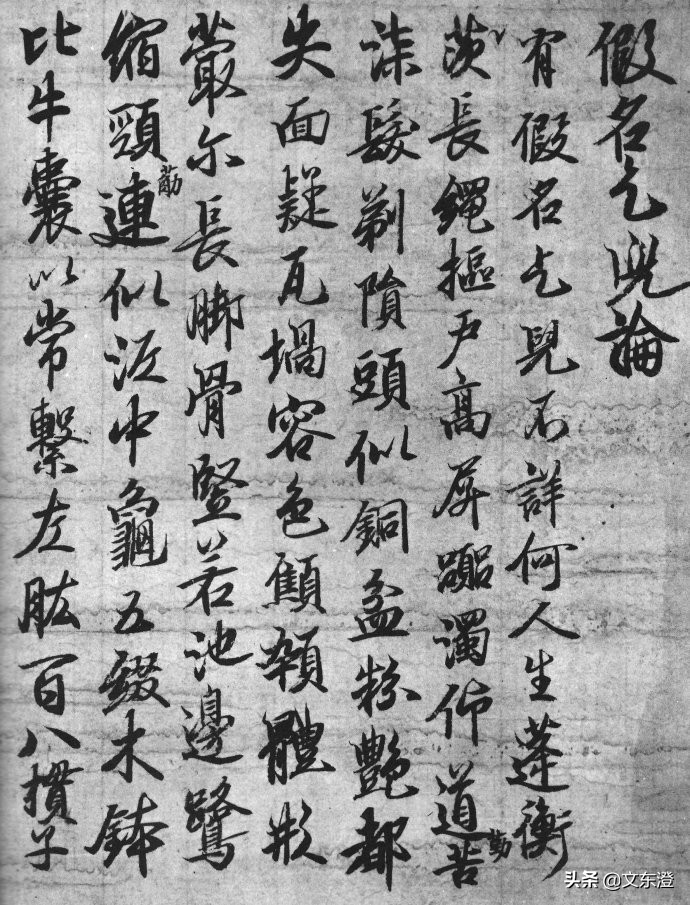 假名乞兒論
有假名乞兒不詳何人生蓬衡
茨長繩樞戸高屏濁仰道勤苦
漆髮剃隕頭似銅盆粉艶都
失面疑瓦堝容色顦顇體形
蕞尔長脚骨竪若池邊鷺
縮頸筋連似泥中龜五綴木鉢
比牛囊以常繫左肱百八子
头条 @文东澄